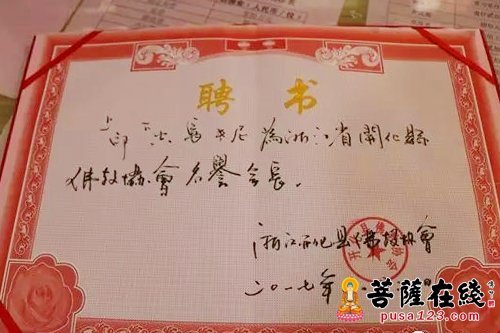 聘书
上印下 為浙江省開化縣
佛教協會名譽会長.
浙江开化县佛教协會
二〇一七年
菩薩在綫
pusa123.com